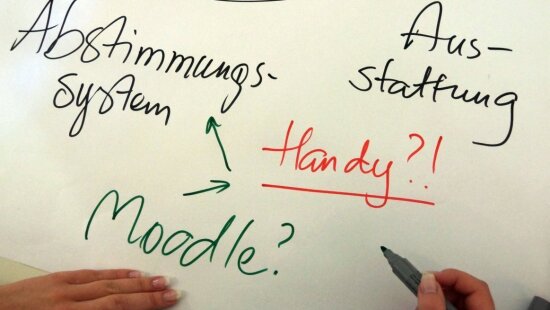 Abstimmungs-
system
Aus-
stattung
Handy?!
Moodle?